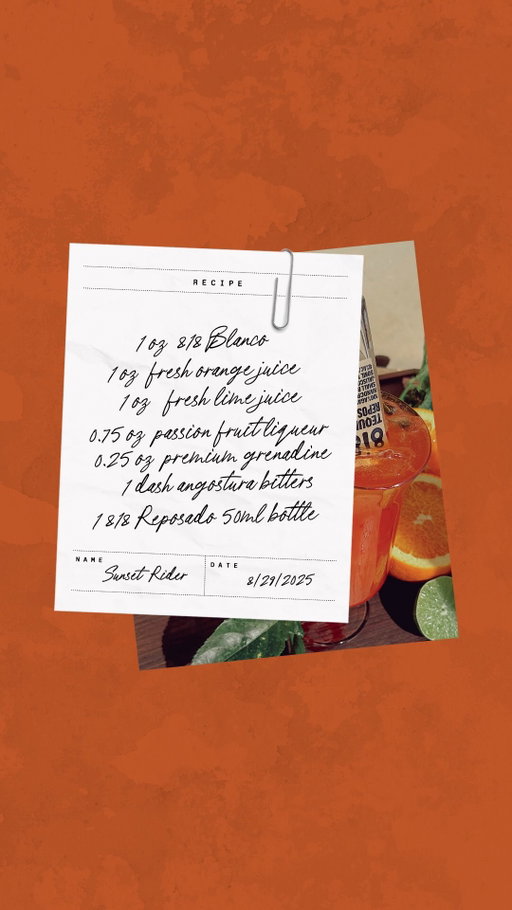 RECIPE
1 oz 818 Blanco
1 oz fresh orange juice
1 oz fresh lime juice
0.75 oz passion fruit liqueur
0.25 oz premium grenadine
1 dash angostura bitters
1 818 Reposado 50ml bottle
NAME
Sunset Rider
DATE
8/29/2025
818
TEQUILA
REPOS